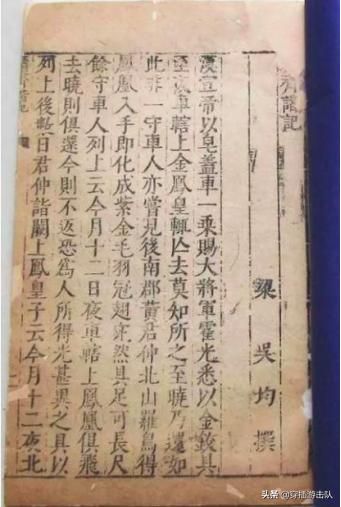 齊諧記
梁 吳均 撰
漢宣帝以皂蓋車一乘賜大將軍霍光悉以金鉸具
至夜車轄上金鳳皇輒亡去莫知所之至曉乃還如
此非一守車人亦嘗見後南郡黃君仲北山羅鳥得
鳳凰入手即化成紫金毛羽冠翅宛然具足可長尺
餘守車人列上云今月十二日夜車轄上鳳凰俱飛
去曉則俱還今則不返恐為人所得光甚異之具以
列上後數日君仲詣闕上鳳皇子云今月十二夜北
頭条 @穿插游击队